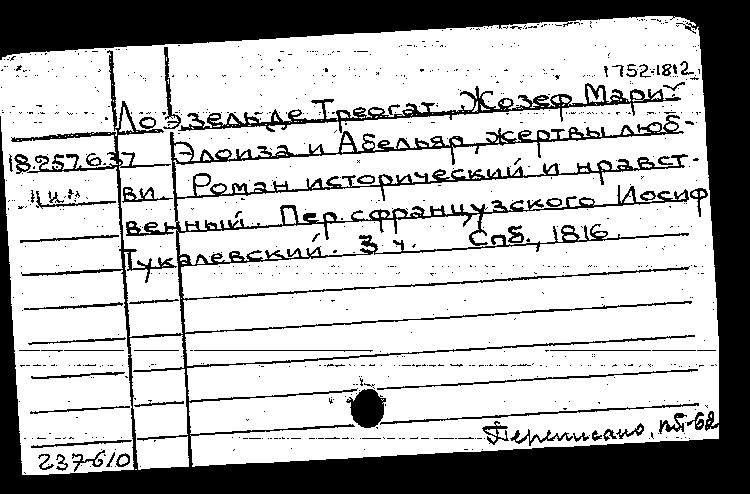 1752-1812
Лоэзель де Треогат, Жозеф Мари
18.257.6.37 Элоиза и Абельяр, жертвы люб-
ви. Роман исторический и нравст-
венный. Пер. с французского Иосиф
Тукалевский. 3 ч. Спб., 1816.
237-610
Переписано,